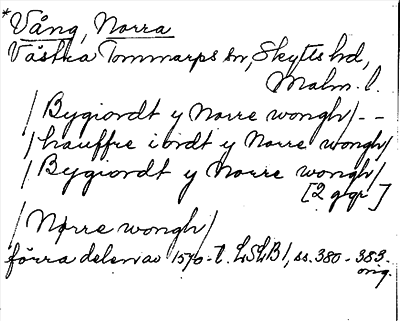 *Vång, Norra
Västra Tommarps sn, Skytts hd,
Malm. l.
/Bygiordt y Norre wongh/--
/hauffre iordt y Norre wongh/
/Bygiordt y Norre wongh/
[2 ggr]
/Nørre wongh/
förra delen av 1570-t. LSLB1, ss. 380-383.
orig.